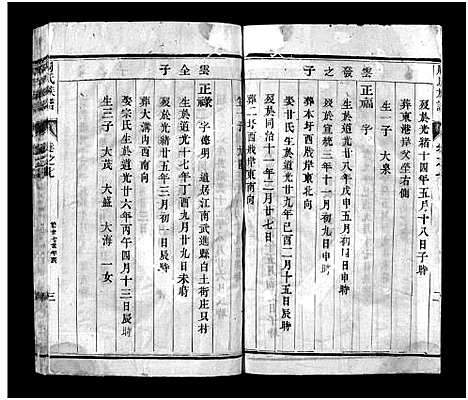 歿於光緒十四年五月十八日子時
葬東港岸艾坐右側
生一子 大泉
雲發之子
正福 字
生於道光廿八年戊申五月初九日申時
歿於宣統三年十一月初九日申時
葬本圩西岸東北向
娶甘氏生於道光廿九年己酉二月十五日辰時
歿於同治十一年三月廿七日
葬二圩西戕岸東南向
雲全子
正祿 字德明 遷居江南武進縣白土街庄只村
生於道光十七年丁酉九月廿九日未時
歿於光緒廿五年三月初一日辰時
葬大溝內西南向
娶宗氏生於道光廿六年丙午四月十三日辰時
生三子 大茂 大盛 大海 一女
周氏族譜
卷之七
三